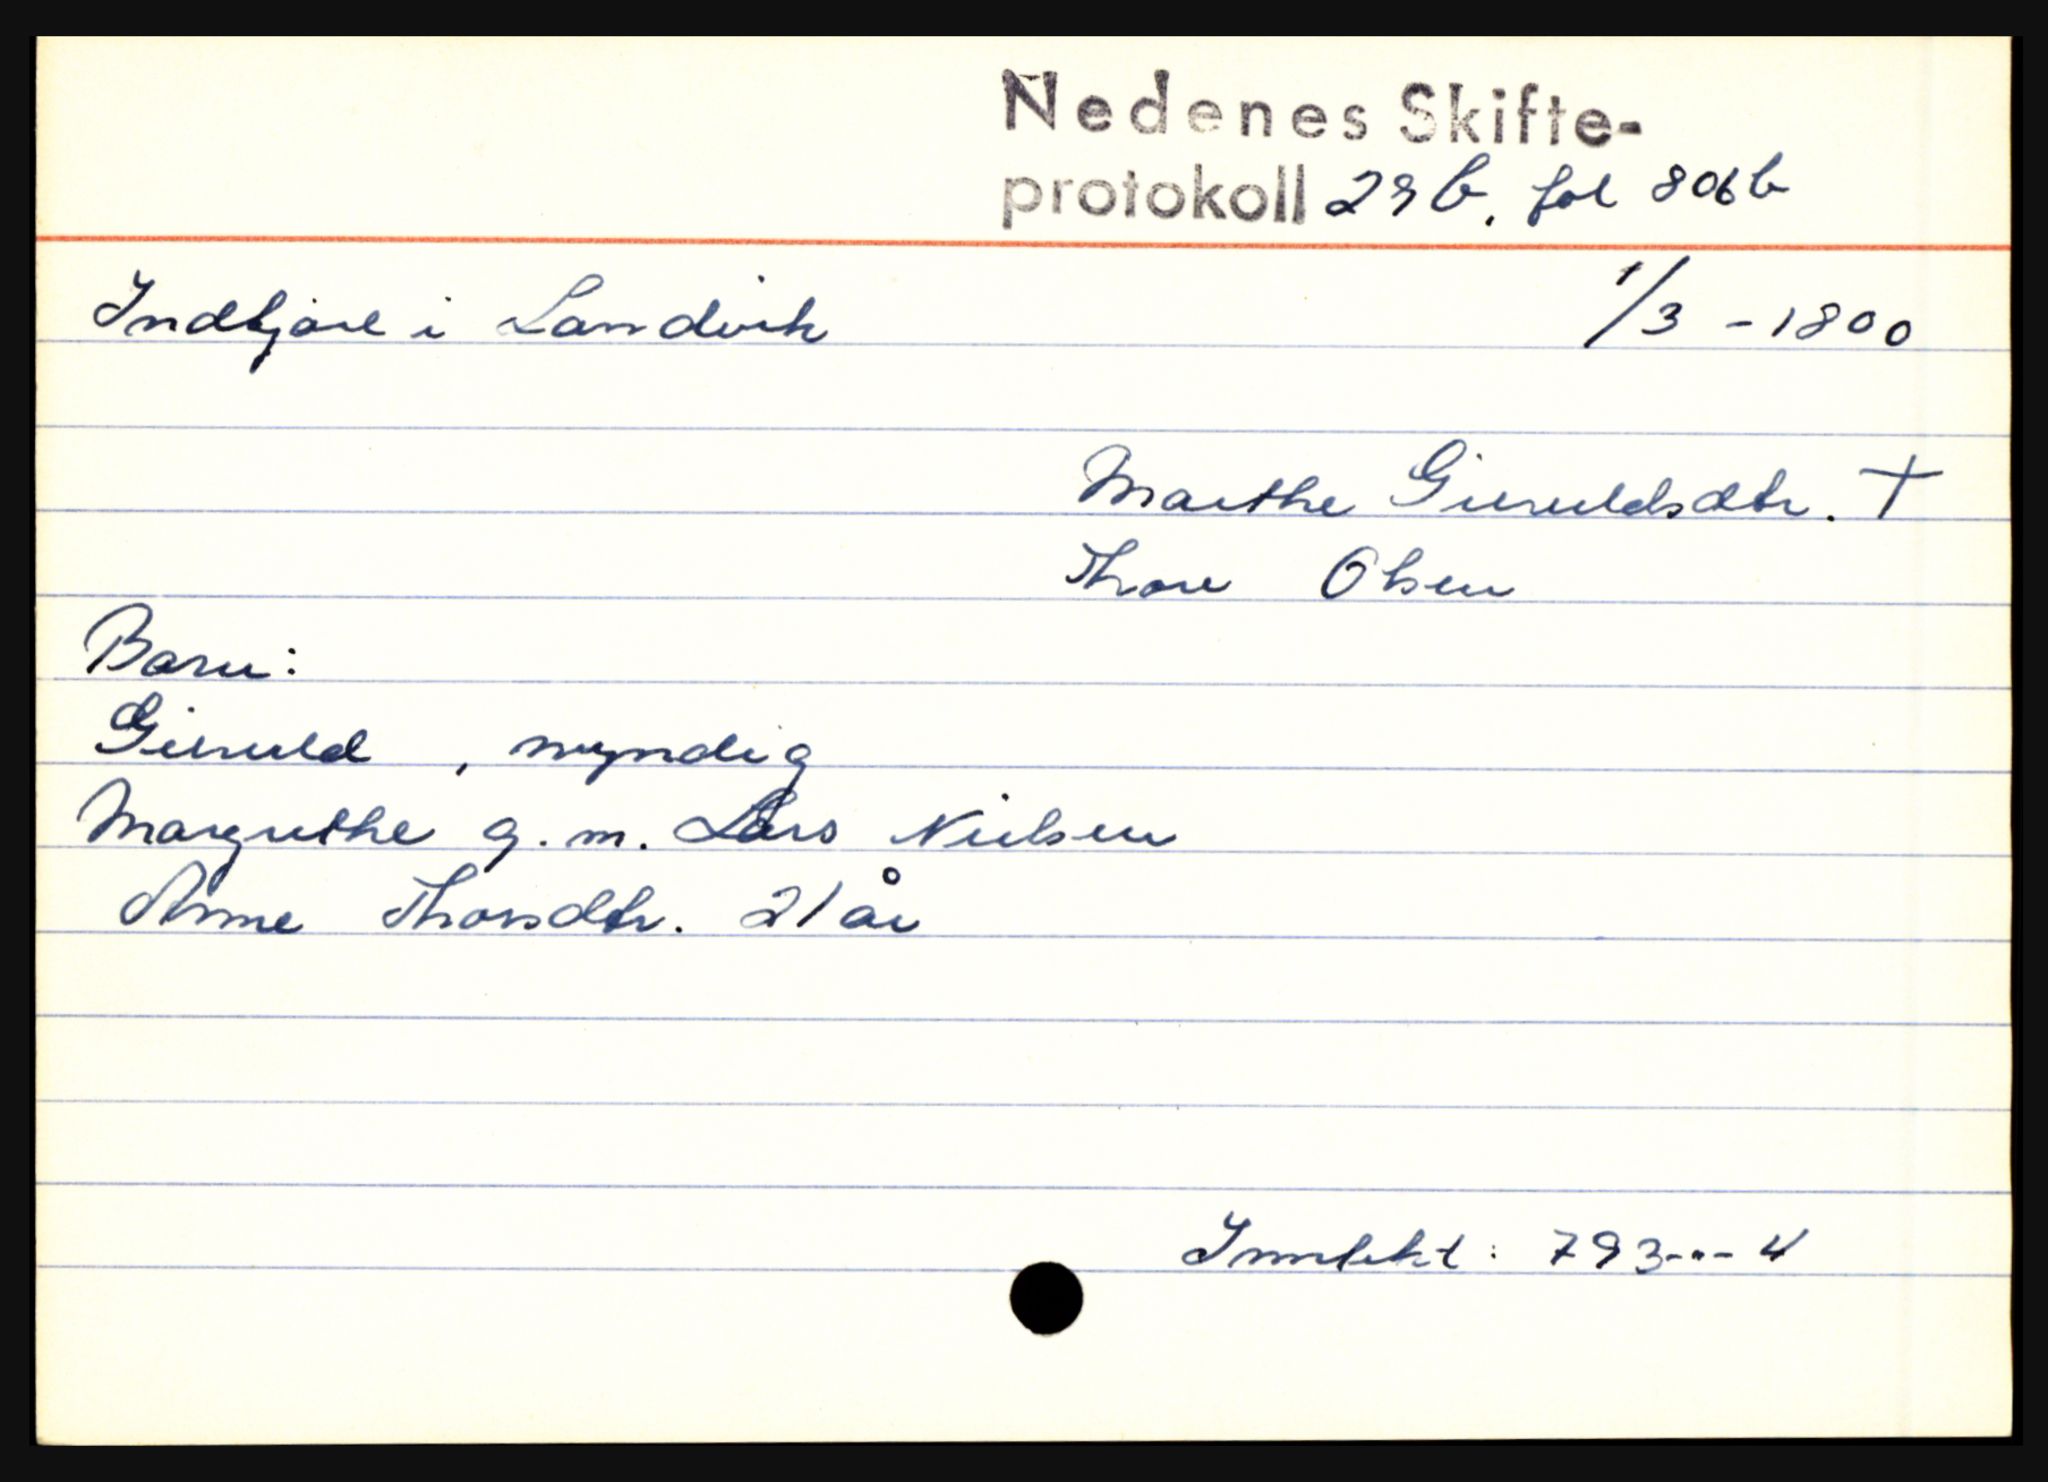 Nedenes Skifte-
protokoll 29 b. fol 806b
Indkjær i Landvik 1/3 - 1800
Marthe Gieruldsdtr. †
Thore Olsen
Barn:
Gieruld , myndig
Margrethe g. m. Lars Nielsen
Anne Thorsdtr. 21 år
Inntekt : 793-"- 4